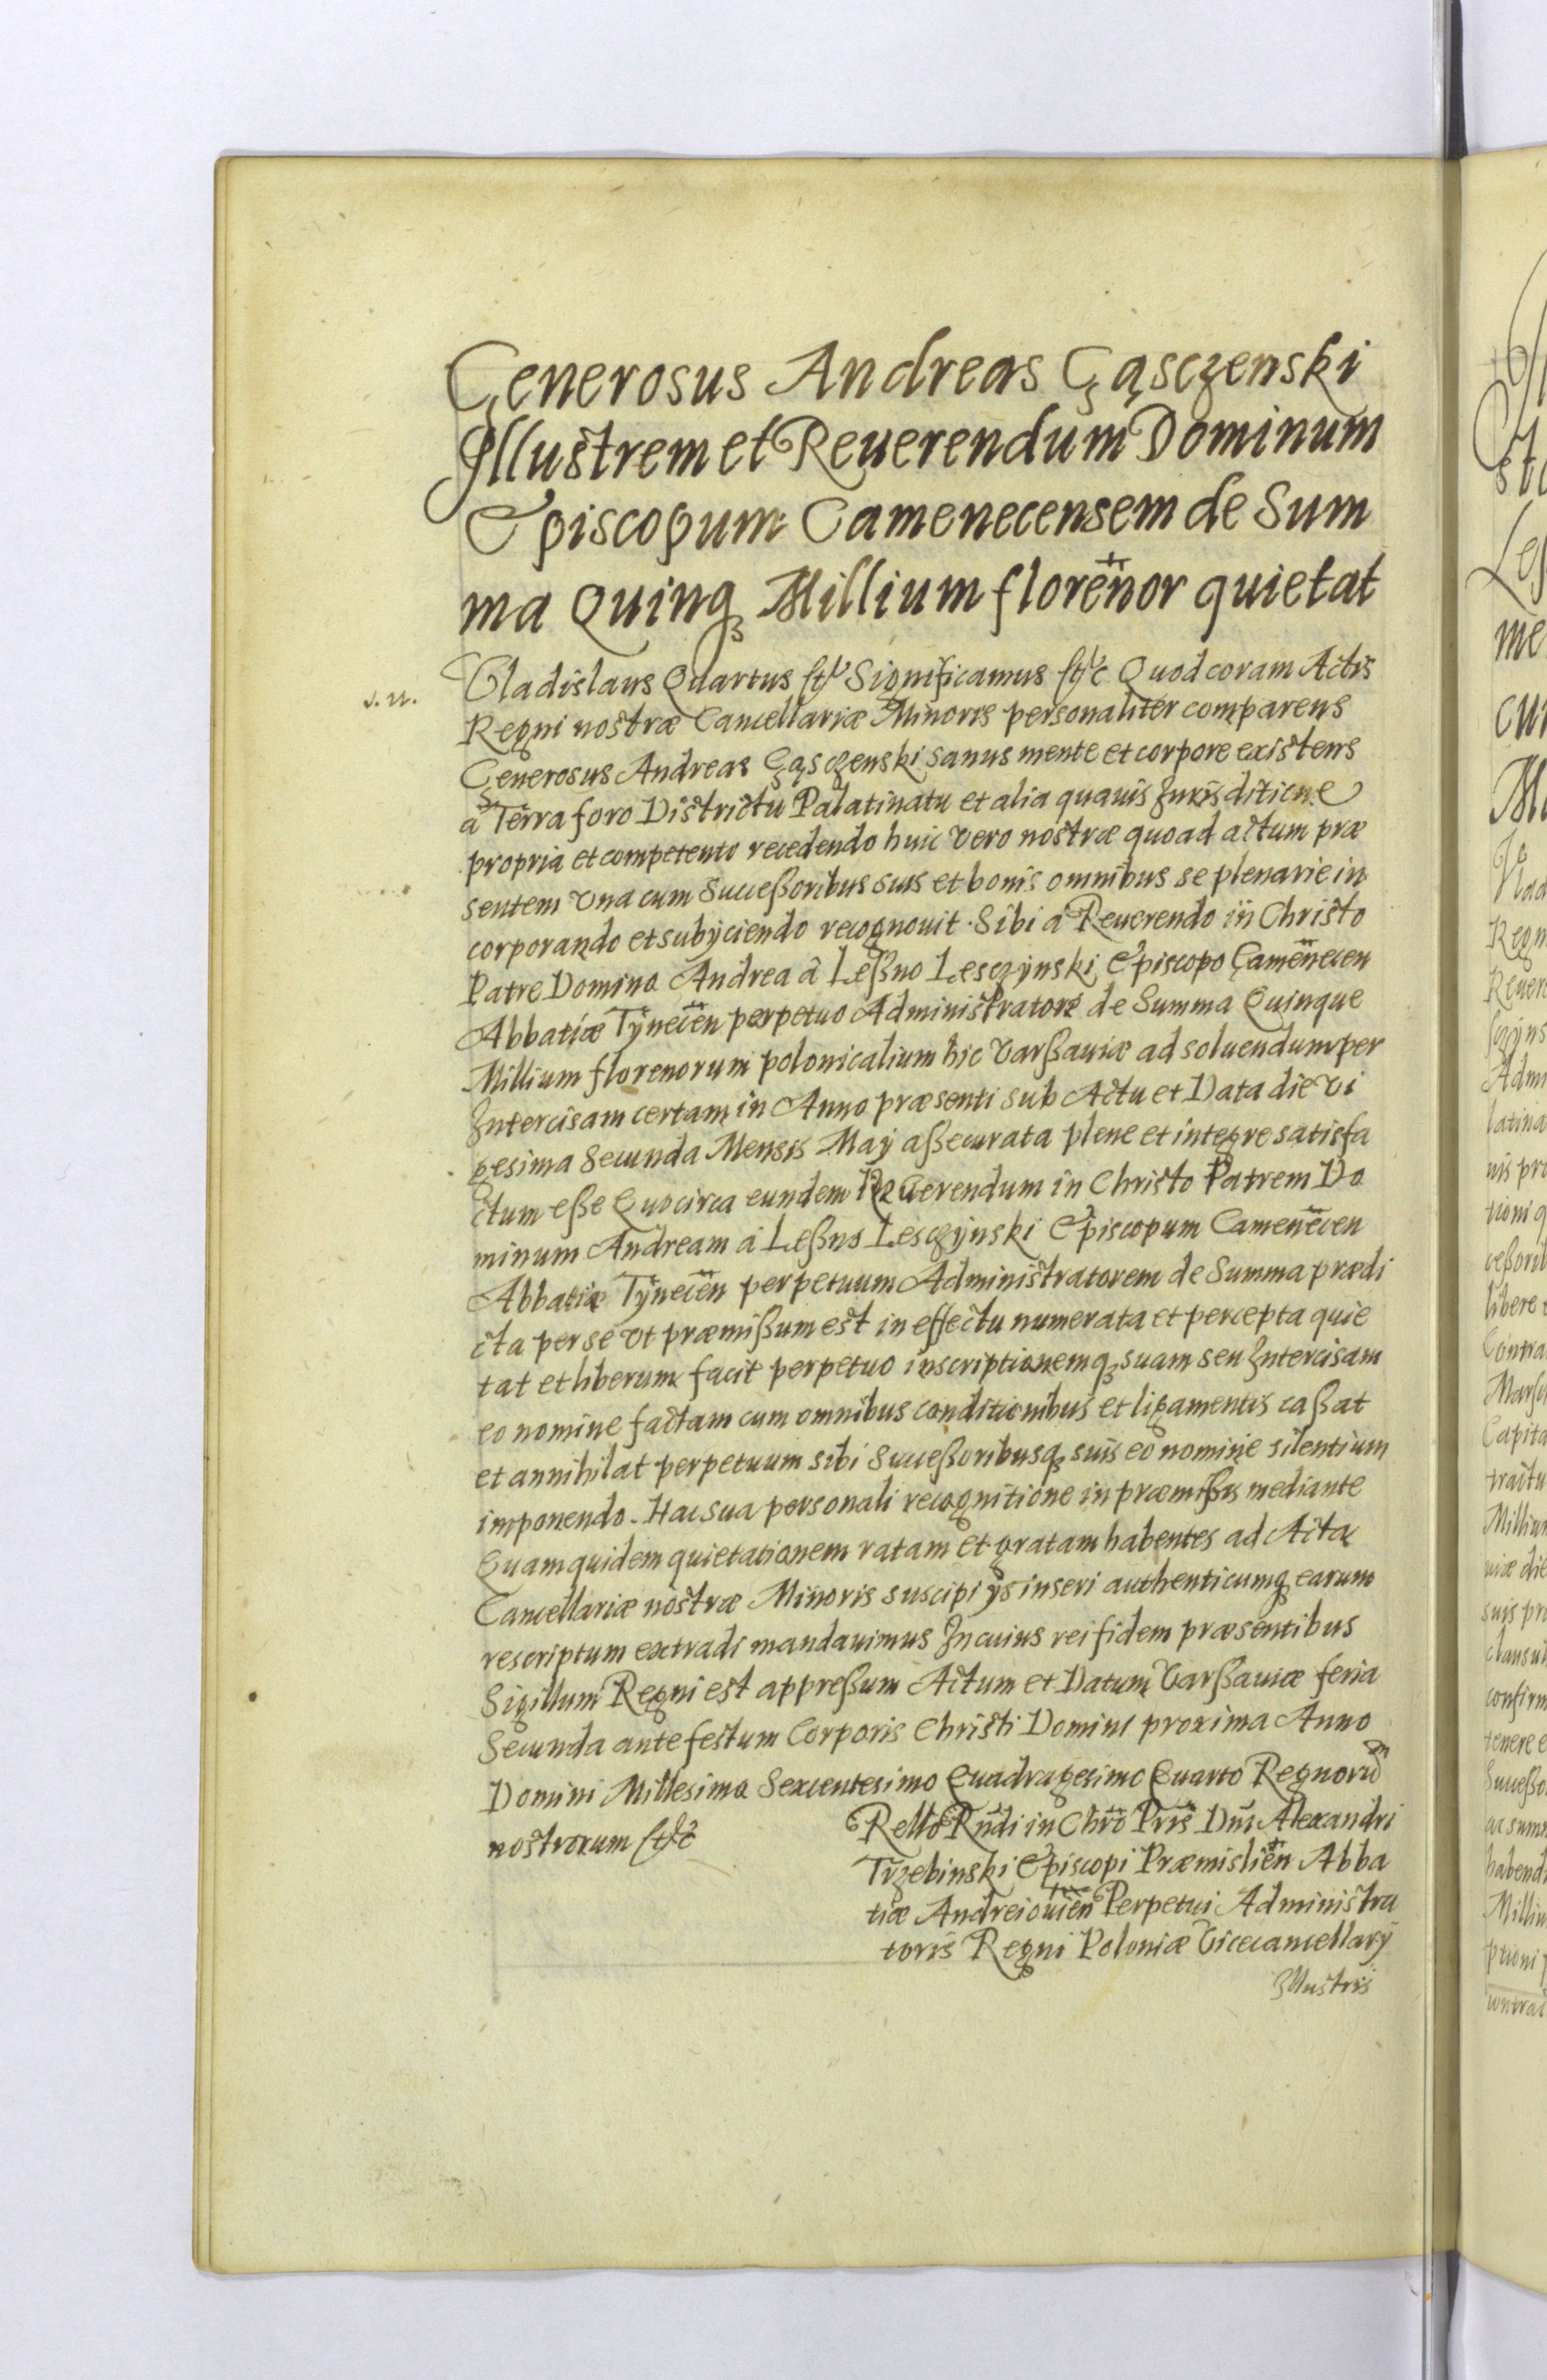 Generosus Andreas Gąsczenski
Illustrem et Reuerendum Dominum
Episcopum Camenecensem de Sum
ma Quinq₃ Millium floren̈or quietat
Vladislaus Quartus &c Significamus &c Quod coram Actis
Regni nostræ Cancellariæ Minoris personaliter comparens
Generosus Andreas Gąsczenski sanus mente et corpore existens
à Terra foro Districtu Palatinatu et alia quauis Jurisditione
propria et competente recedendo huic vero nostræ quoad actum præ
sentem Vna cum Succeßoribus suis et bonis omnibus se plenarie in
corporando et subÿciendo recognouit. Sibi à Reuerendo in Christo
Patre Domino Andrea à Leßno Lesczÿnski Episcopo Camen̈ecen
Abbatiæ Tÿnecen̈ perpetuo Administratore de Summa Quinque
Millium florenorum polonicalium hic Varßauiæ ad soluendum per
Intercisam certam in Anno præsenti sub Actu et Data die Vi
gesima Secunda Mensis Maÿ aßecurata plene et integre satisfa
ctum eße Quocirca eundem Reuerendum in Christo Patrem Do
minum Andream à Leßno Lesczÿnski Episcopum Camen̈ecen
Abbatiæ Tÿnecen̈ perpetuum Administratorem de Summa prædi
cta per se Vt præmißum est in effectu numerata et percepta quie
tat et liberum facit perpetuo inscriptionemq₃ suam seu Intercisam
eo nomine factam cum omnibus conditionibus et ligamentis caßat
et annihilat perpetuum sibi Succeßoribusq₃ suis eo nomine silentium
imponendo. Hac sua personali recognitione in præmißis mediante
Quam quidem quietationem ratam et gratam habentes ad Acta
Cancellariæ nostræ Minoris suscipi ÿs inseri authenticumq₃ earum
rescriptum extradi mandauimus In cuius rei fidem præsentibus
Sigillum Regni est appreßum Actum et Datum Varßauiæ feria
Secunda ante festum Corporis Christi Domini proxima Anno
Domini Millesimo Sexcentesimo Quadragesimo Quarto Regnorum
nostrorum &c
Rello Rn̄di in Chrō Pris̈ Dn̄i Alexandri
Trzebinski Episcopi Præmislien̈ Abba
tiæ Andreiouien̈ Perpetui Administra
toris Regni Poloniæ Vicecancellarÿ
Illustris